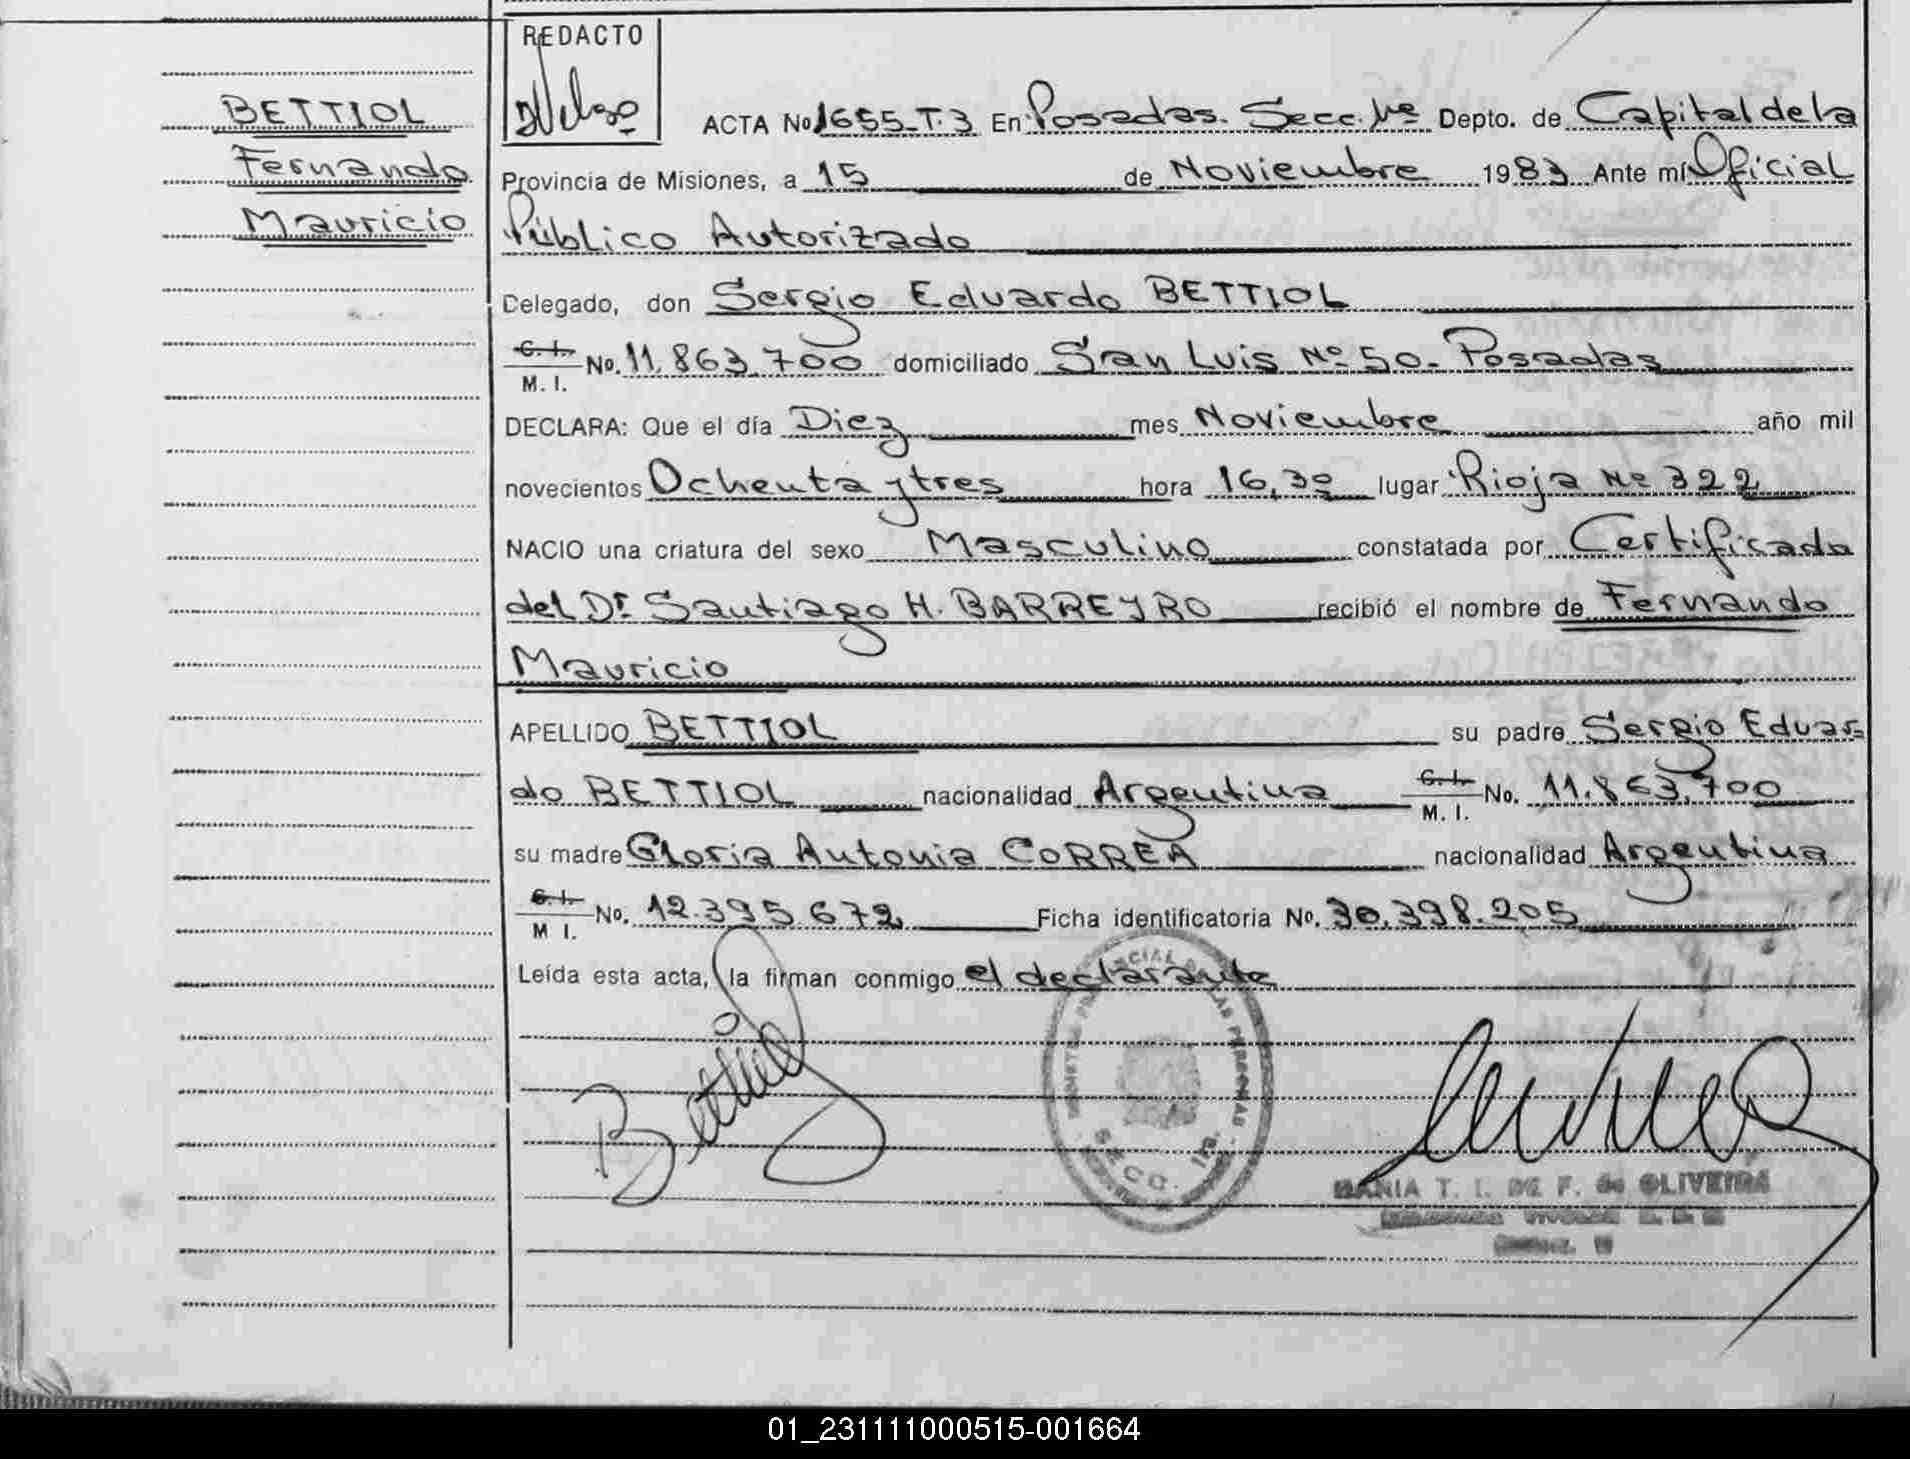 BETTIOL
Fernando
Mauricio
REDACTO
ACTA No 1655-T.3 En Posadas. Secc. 1ª Depto. de Capital de la
Provincia de Misiones, a 15 de Noviembre 1983 Ante mí Oficial
Público Autorizado
Delegado, don Sergio Eduardo BETTIOL
C. I.
M. I. No. 11.863.700 domiciliado San Luis Nº 50.- Posadas
DECLARA: Que el día Diez mes Noviembre año mil
novecientos Ochenta y tres hora 16,30 lugar Rioja Nº 322
NACIO una criatura del sexo Masculino constatada por Certificado
del Dr. Santiago H. BARREYRO recibió el nombre de Fernando
Mauricio
APELLIDO BETTIOL su padre Sergio Eduar=
do BETTIOL nacionalidad Argentina C. I. M. I. No. 11.863.700
su madre Gloria Antonia CORREA nacionalidad Argentina
C. I.
M I. No. 12.395.672 Ficha identificatoria No. 30.398.205
Leída esta acta, la firman conmigo el declarante
Bettiol
SECC. 1ra.
MARIA T. I. DE F. de OLIVEIRA
01_231111000515-001664